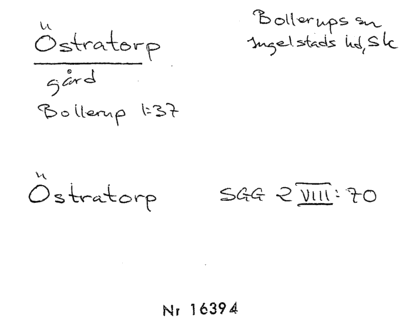 Östratorp
Bollerups sn
Ingelstads hd, Sk
gård
Bollerup 1:37
Östratorp SGG 2 VIII: 70
Nr 16394